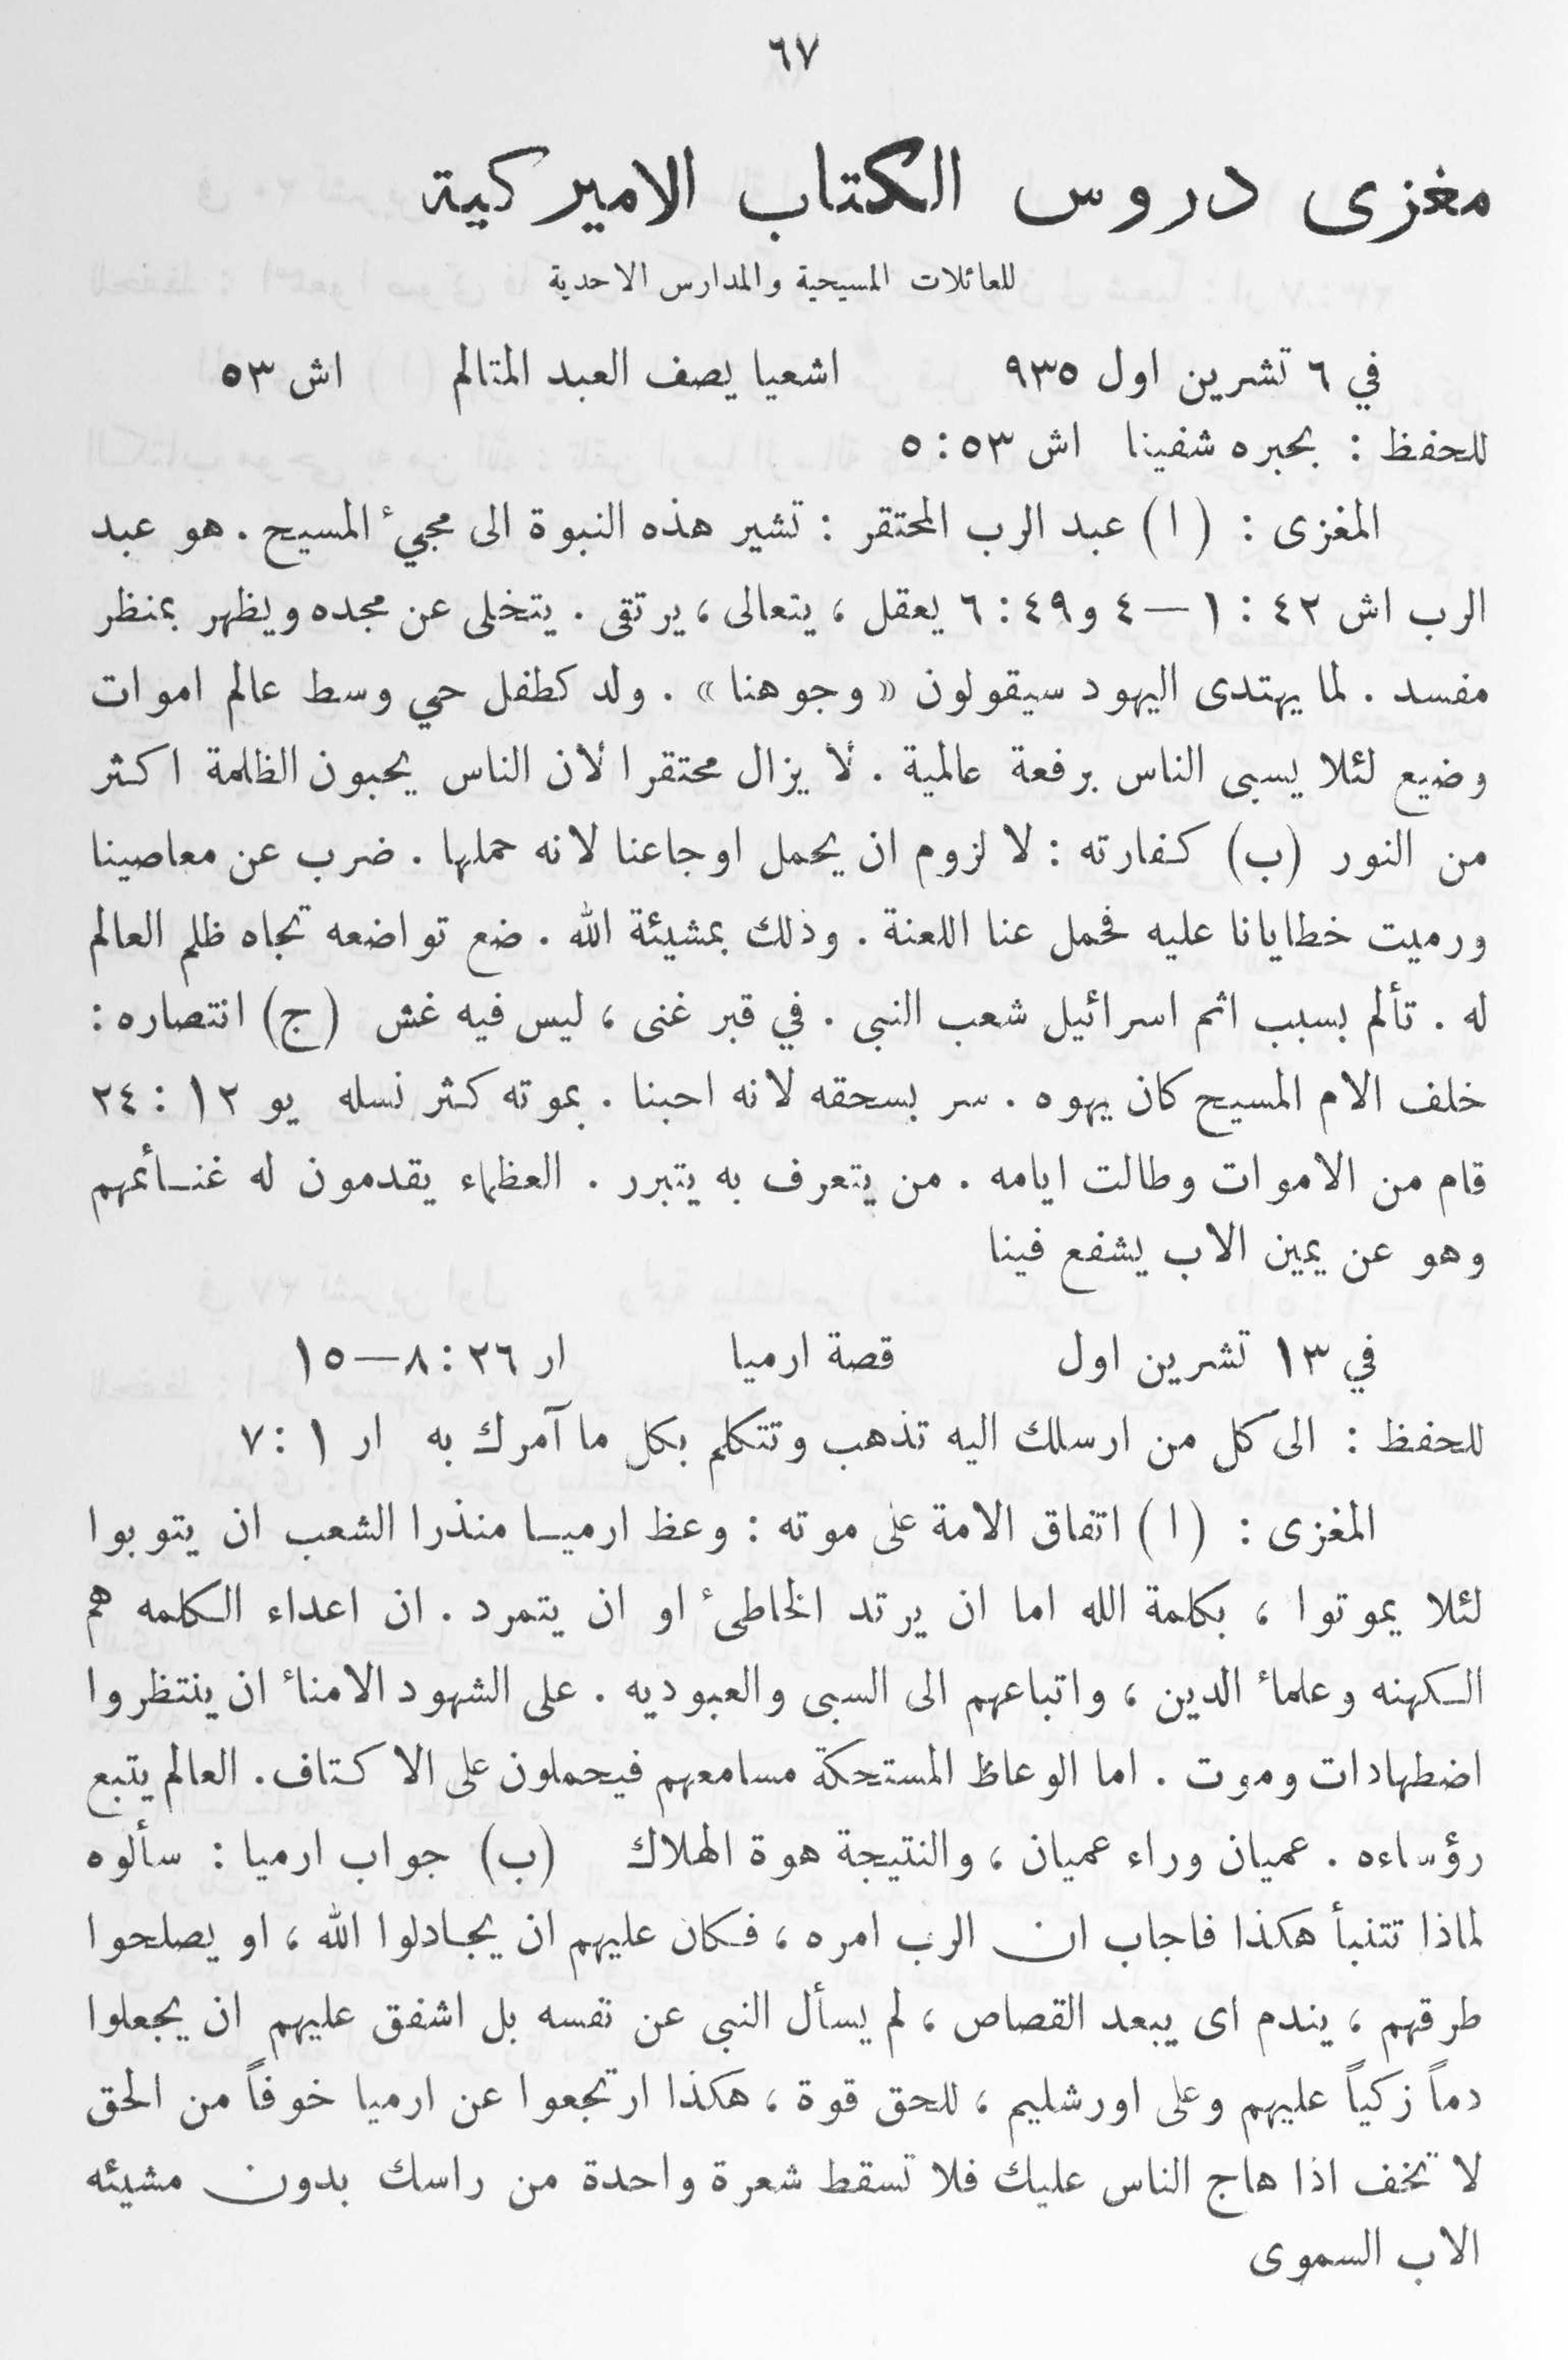 ٦٧
مغزى دروس الكتاب الاميركية
للعائلات المسيحية والمدارس الاحدية
في ٦ تشرين اول ٩٣٥ اشعيا يصف العبد المتالم اش ٥٣
للحفظ : بحبره شفينا اش ٥٣ : ٥
المغزى : ( ا ) عبد الرب المحتقر : تشير هذه النبوة الى مجيءُ المسيح . هو عبد
الرب اش ٤٢ : ١ — ٤ و ٤٩ : ٦ يعقل ، يتعالى ، يرتقى . يتخلى عن مجده ويظهر بمنظر
مفسد . لما يهتدى اليهود سيقولون « وجوهنا » . ولد كطفل حي وسط عالم اموات
وضيع لئلا يسبى الناس برفعة عالمية . لا يزال محتقرا لان الناس يحبون الظلمة اكثر
من النور (ب) كفارته : لا لزوم ان يحمل اوجاعنا لانه حملها . ضرب عن معاصينا
ورميت خطايانا عليه فحمل عنا اللعنة . وذلك بمشيئة الله . ضع تواضعه تجاه ظلم العالم
له . تألم بسبب اثم اسرائيل شعب النبى . في قبر غنى ، ليس فيه غش (ج) انتصاره :
خلف الام المسيح كان يهوه . سر بسحقه لانه احبنا . بموته كثر نسله يو ١٢ : ٢٤
قام من الاموات وطالت ايامه . من يتعرف به يتبرر . العظماء يقدمون له غنائمهم
وهو عن يمين الاب يشفع فينا
في ١٣ تشرين اول قصة ارميا ار ٢٦ : ٨ — ١٥
للحفظ : الى كل من ارسلك اليه تذهب وتتكلم بكل ما آمرك به ار ١ : ٧
المغزى : ( ا ) اتفاق الامة على موته : وعظ ارميا منذرا الشعب ان يتوبوا
لئلا يموتوا ، بكلمة الله اما ان يرتد الخاطئ او ان يتمرد . ان اعداء الكلمه هم
الكهنه وعلماء الدين ، واتباعهم الى السبى والعبوديه . على الشهود الامناء ان ينتظروا
اضطهادات وموت . اما الوعاظ المستحكة مسامعهم فيحملون على الاكتاف . العالم يتبع
رؤساءه . عميان وراء عميان ، والنتيجة هوة الهلاك (ب) جواب ارميا : سألوه
لماذا تتنبأ هكذا فاجاب ان الرب امره ، فكان عليهم ان يجادلوا الله ، او يصلحوا
طرقهم ، يندم اى يبعد القصاص ، لم يسأل النبى عن نفسه بل اشفق عليهم ان يجعلوا
دماً زكياً عليهم وعلى اورشليم ، للحق قوة ، هكذا ارتجعوا عن ارميا خوفاً من الحق
لا تخف اذا هاج الناس عليك فلا تسقط شعرة واحدة من راسك بدون مشيئه
الاب السموى